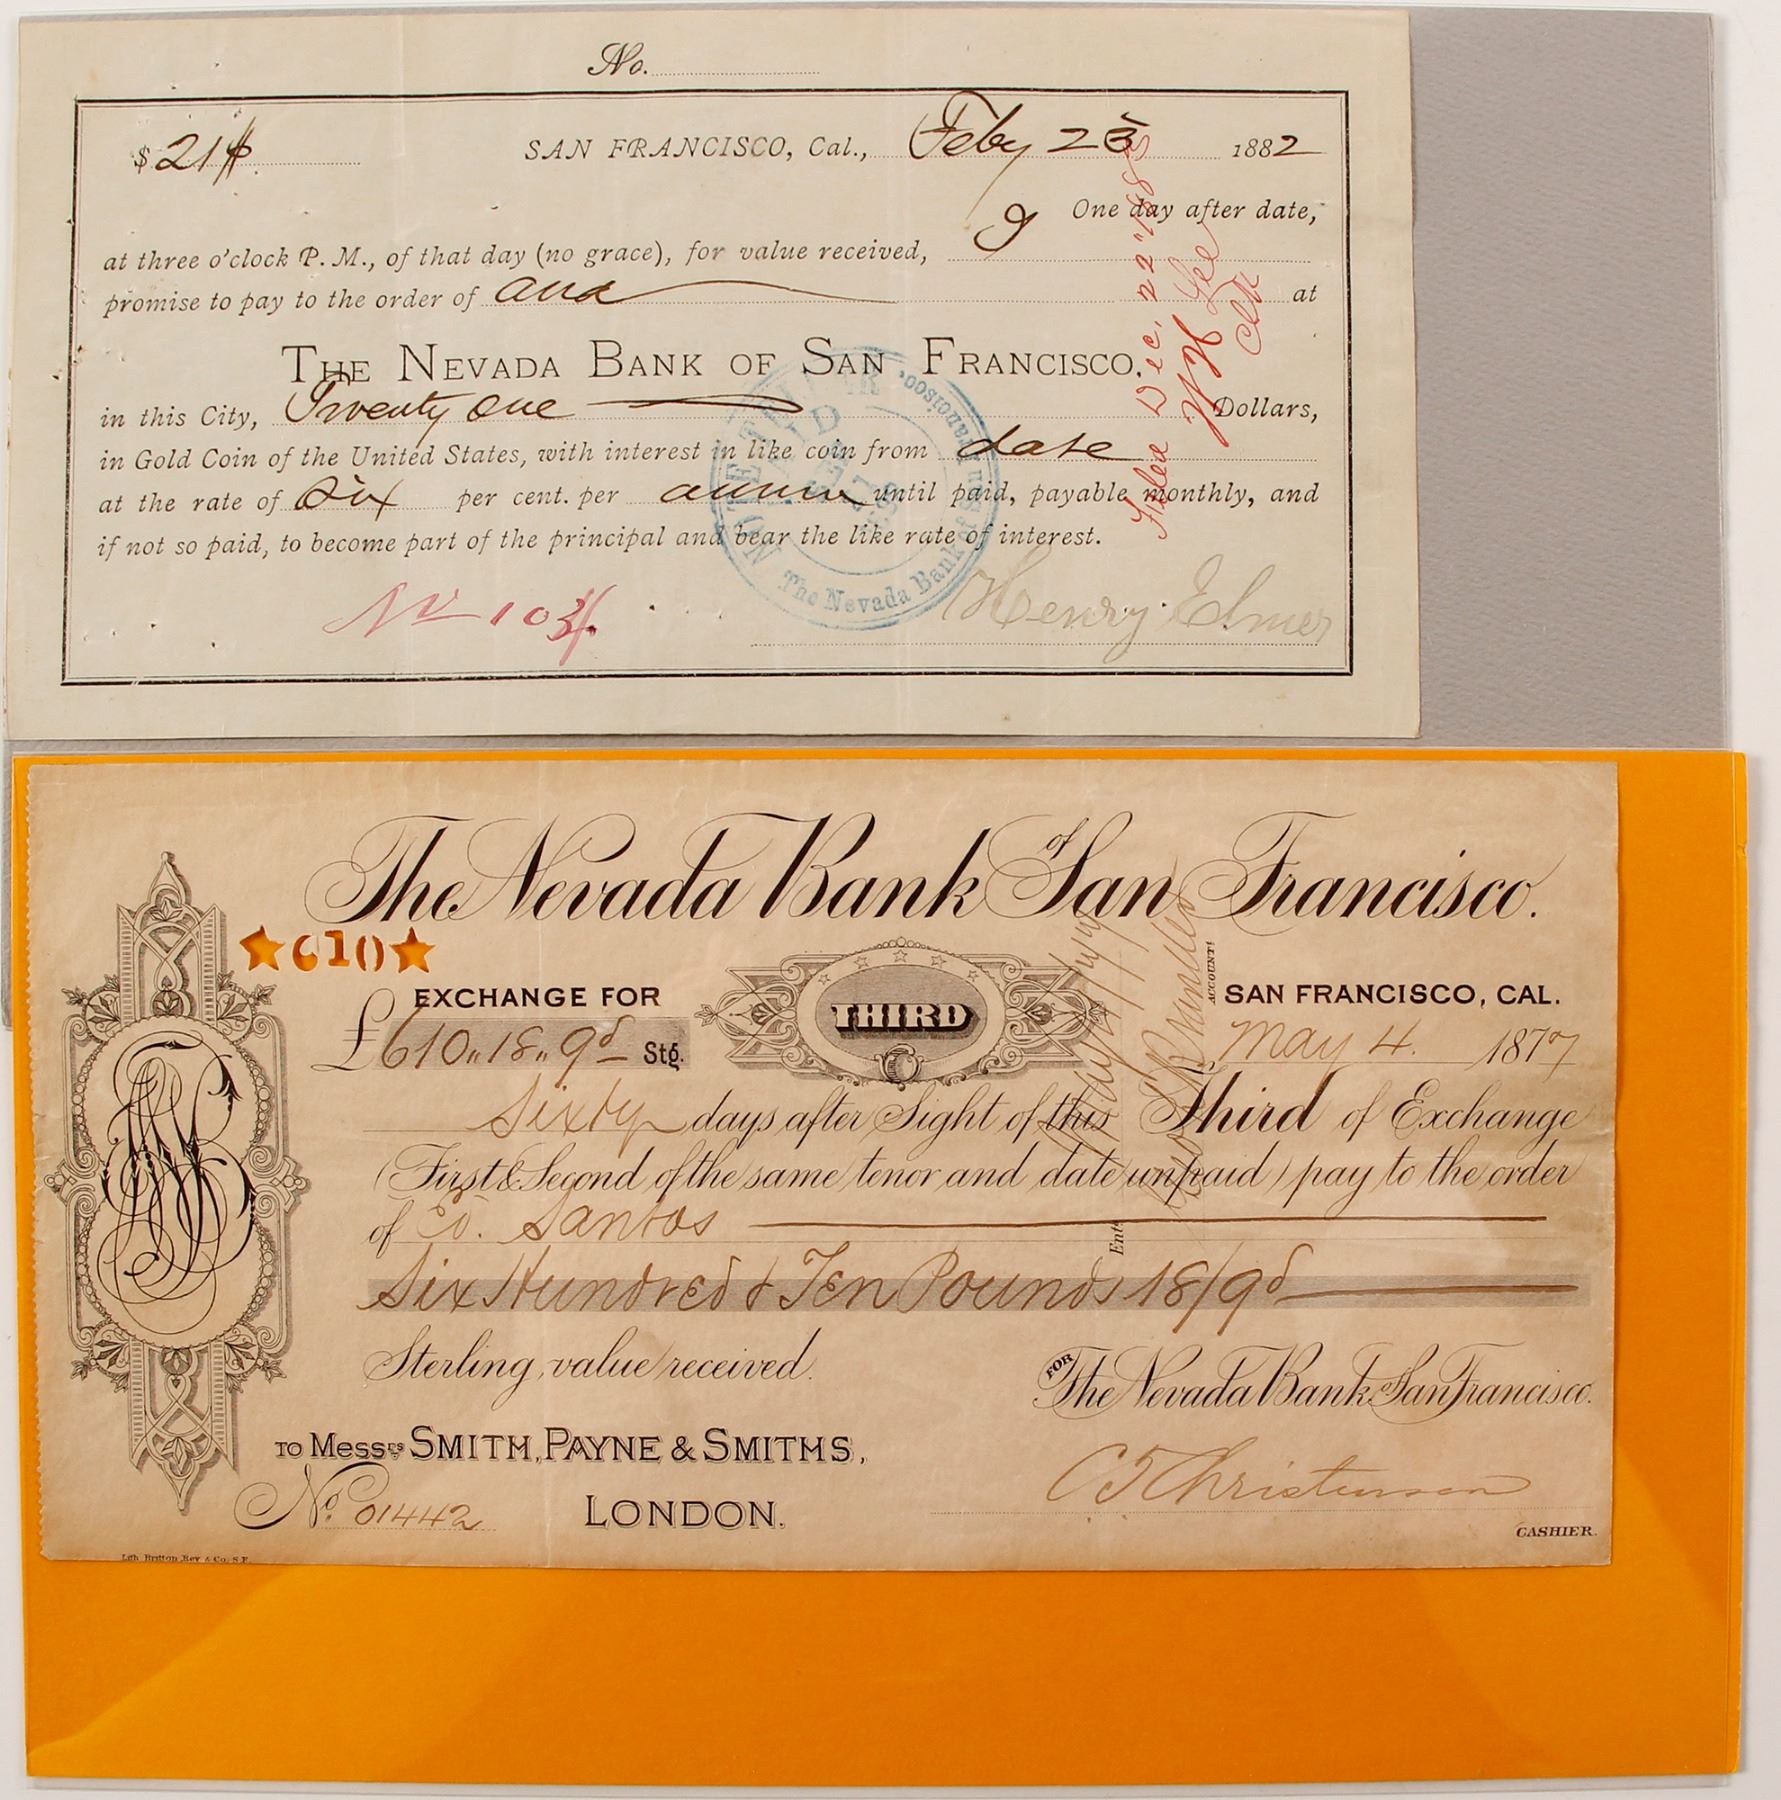 No.
$ 21 SAN FRANCISCO, Cal., Feby 23 1882
I One day after date,
at three o'clock P. M., of that day (no grace), for value received,
promise to pay to the order of at
THE NEVADA BANK OF SAN FRANCISCO,
in this City, Twenty One Dollars,
in Gold Coin of the United States, with interest in like coin from date
at the rate of Six per cent. per annum until paid, payable monthly, and
if not so paid, to become part of the principal and bear the like rate of interest.
No 103
Henry Elmer
The Nevada Bank of San Francisco.
Filed Dec. 22" 188
Lee
Clk
The Nevada Bank of San Francisco.
★610★
EXCHANGE FOR
£610,,18,,9d Stg.
THIRD
SAN FRANCISCO, CAL.
May 4. 1877
Sixty days after Sight of this Third of Exchange
(First & Second of the same tenor and date unpaid) pay to the order
of Santos
Six Hundred & Ten Pounds 18/9d
Sterling, value received.
FOR The Nevada Bank San Francisco.
TO Messrs SMITH, PAYNE & SMITHS,
No. 01442 LONDON.
C T Christensen
CASHIER.
ACCOUNT!
Entd
Lith. Britton, Rey & Co. S.F.